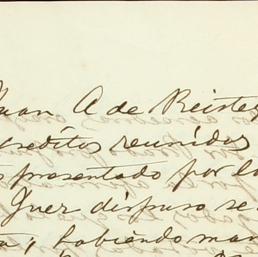 Juan A de Reistegu
creditos reunidos
presentado por lo
Juez dispuso se
habiendo man